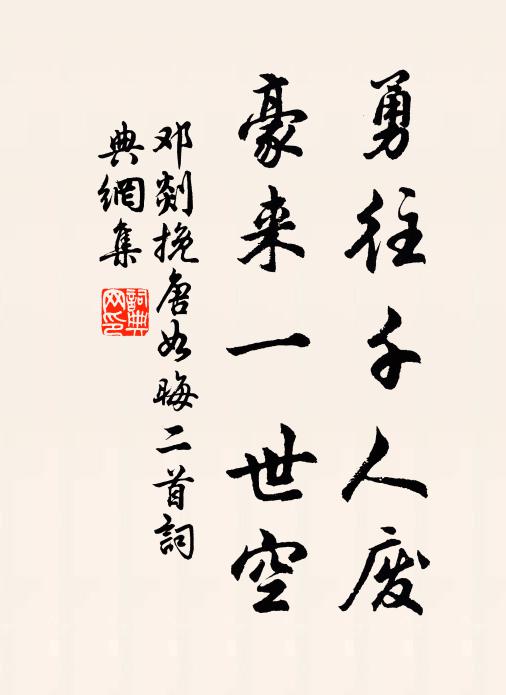 勇往千人废
豪来一世空
邓剡挽唐如晦二首詞
典網集
詞典
网印